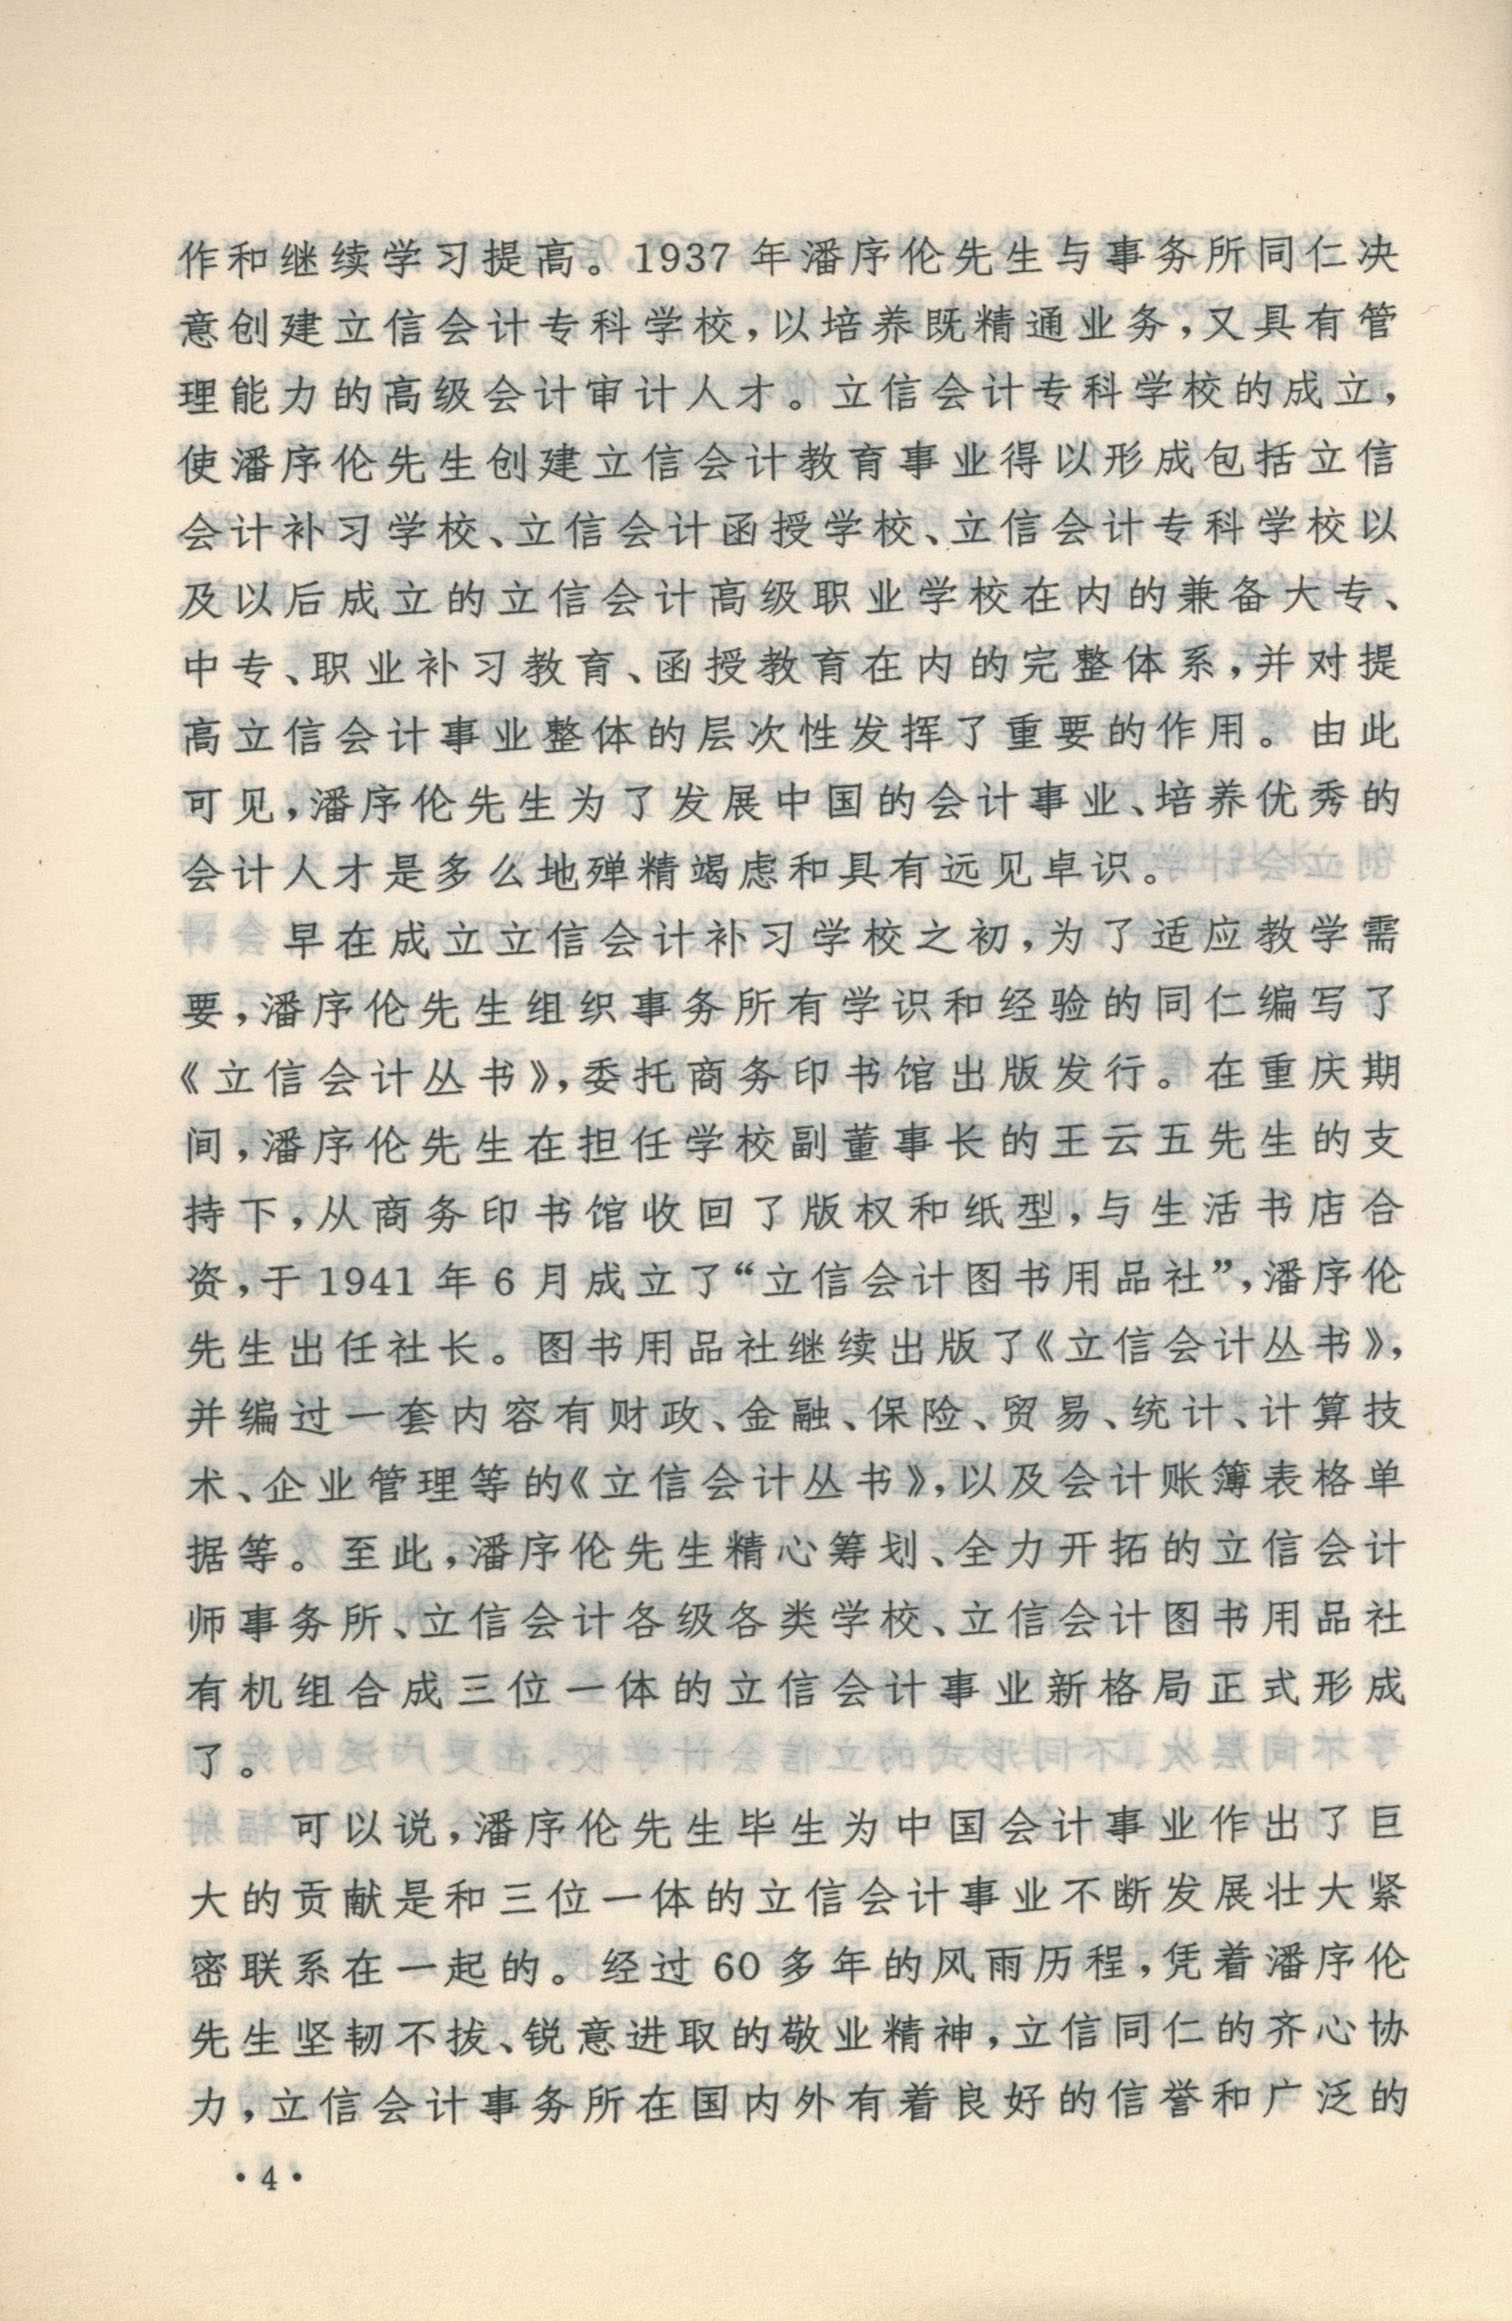 作和继续学习提高。1937年潘序伦先生与事务所同仁决
意创建立信会计专科学校,以培养既精通业务,又具有管
理能力的高级会计审计人才。立信会计专科学校的成立,
使潘序伦先生创建立信会计教育事业得以形成包括立信
会计补习学校、立信会计函授学校、立信会计专科学校以
及以后成立的立信会计高级职业学校在内的兼备大专、
中专、职业补习教育、函授教育在内的完整体系,并对提
高立信会计事业整体的层次性发挥了重要的作用。由此
可见,潘序伦先生为了发展中国的会计事业、培养优秀的
会计人才是多么地殚精竭虑和具有远见卓识。
早在成立立信会计补习学校之初,为了适应教学需
要,潘序伦先生组织事务所有学识和经验的同仁编写了
《立信会计丛书》,委托商务印书馆出版发行。在重庆期
间,潘序伦先生在担任学校副董事长的王云五先生的支
持下,从商务印书馆收回了版权和纸型,与生活书店合
资,于1941年6月成立了“立信会计图书用品社”,潘序伦
先生出任社长。图书用品社继续出版了《立信会计丛书》,
并编过一套内容有财政、金融、保险、贸易、统计、计算技
术、企业管理等的《立信会计丛书》,以及会计账簿表格单
据等。至此,潘序伦先生精心筹划、全力开拓的立信会计
师事务所、立信会计各级各类学校、立信会计图书用品社
有机组合成三位一体的立信会计事业新格局正式形成
了。
可以说,潘序伦先生毕生为中国会计事业作出了巨
大的贡献是和三位一体的立信会计事业不断发展壮大紧
密联系在一起的。经过60多年的风雨历程,凭着潘序伦
先生坚韧不拔、锐意进取的敬业精神,立信同仁的齐心协
力,立信会计事务所在国内外有着良好的信誉和广泛的
·4·